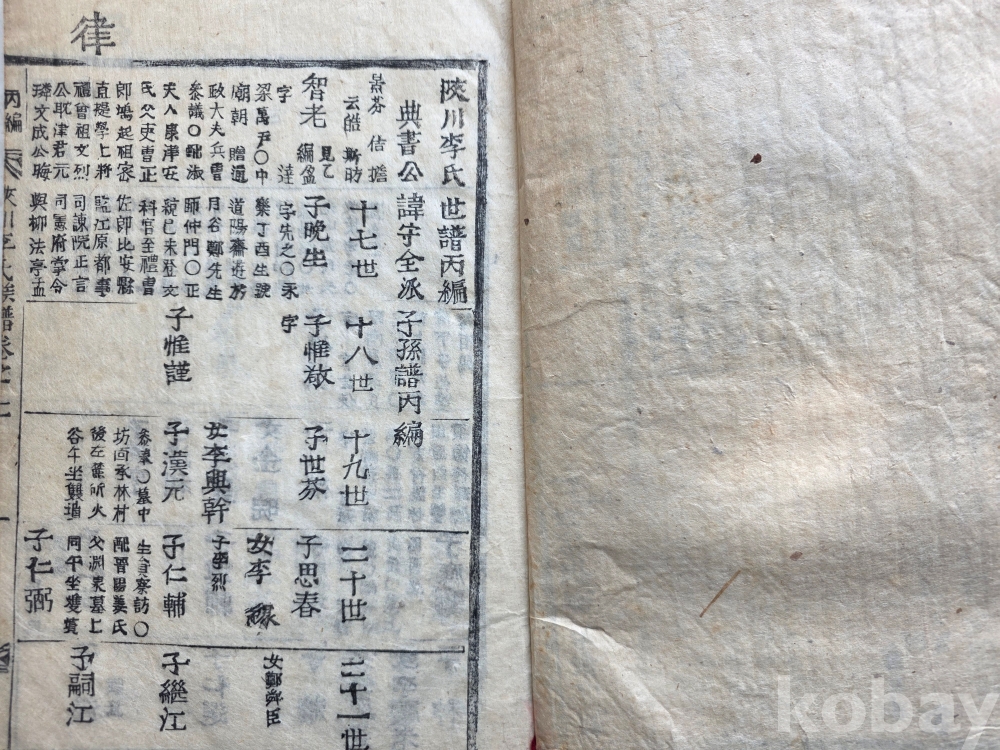 律
陜川李氏世譜丙編
典書公諱守全派子孫譜丙編
十七世
十八世
十九世
二十世
二十一世
智老
編盆
見乙
子晩生
子惟敬
子世芬
子思春
字
達
字先之〇永
樂丁酉生號
道陽齋遊於
月谷鄭先生
師仲門〇正
統己未登文
科官至禮曹
佐郎比安縣
監江原都事
司諫院正言
司憲府掌令
與柳法亭孟
字
廟朝贈通
政大夫兵曹
參議〇配淑
夫人康津安
氏父吏曹正
郎鴻起祖密
直提學上將
禮曾祖文烈
公耽津君元
璘文成公晦
子惟謹
女李興幹
子漢元
參奉〇墓中
坊向承林村
後左麓所火
谷午坐龔瑨
女李
子李烈
子仁輔
生員察訪〇
配晋陽姜氏
父淵泉墓上
同午坐雙墳
子仁弼
女鄭舜臣
子繼江
子嗣江
丙編
陜川李氏族譜卷之一
一
kobay